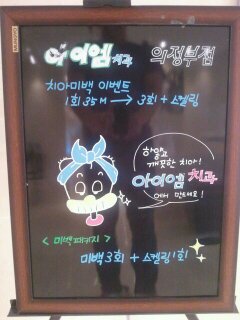 아이엠 치과 의정부점
치아미백 이벤트
1회 35만 → 3회 + 스케링
하얗고
깨끗한 치아!
아이엠 치과
에서 만드세요!
< 미백패키지 >
미백 3회 + 스케링 1회